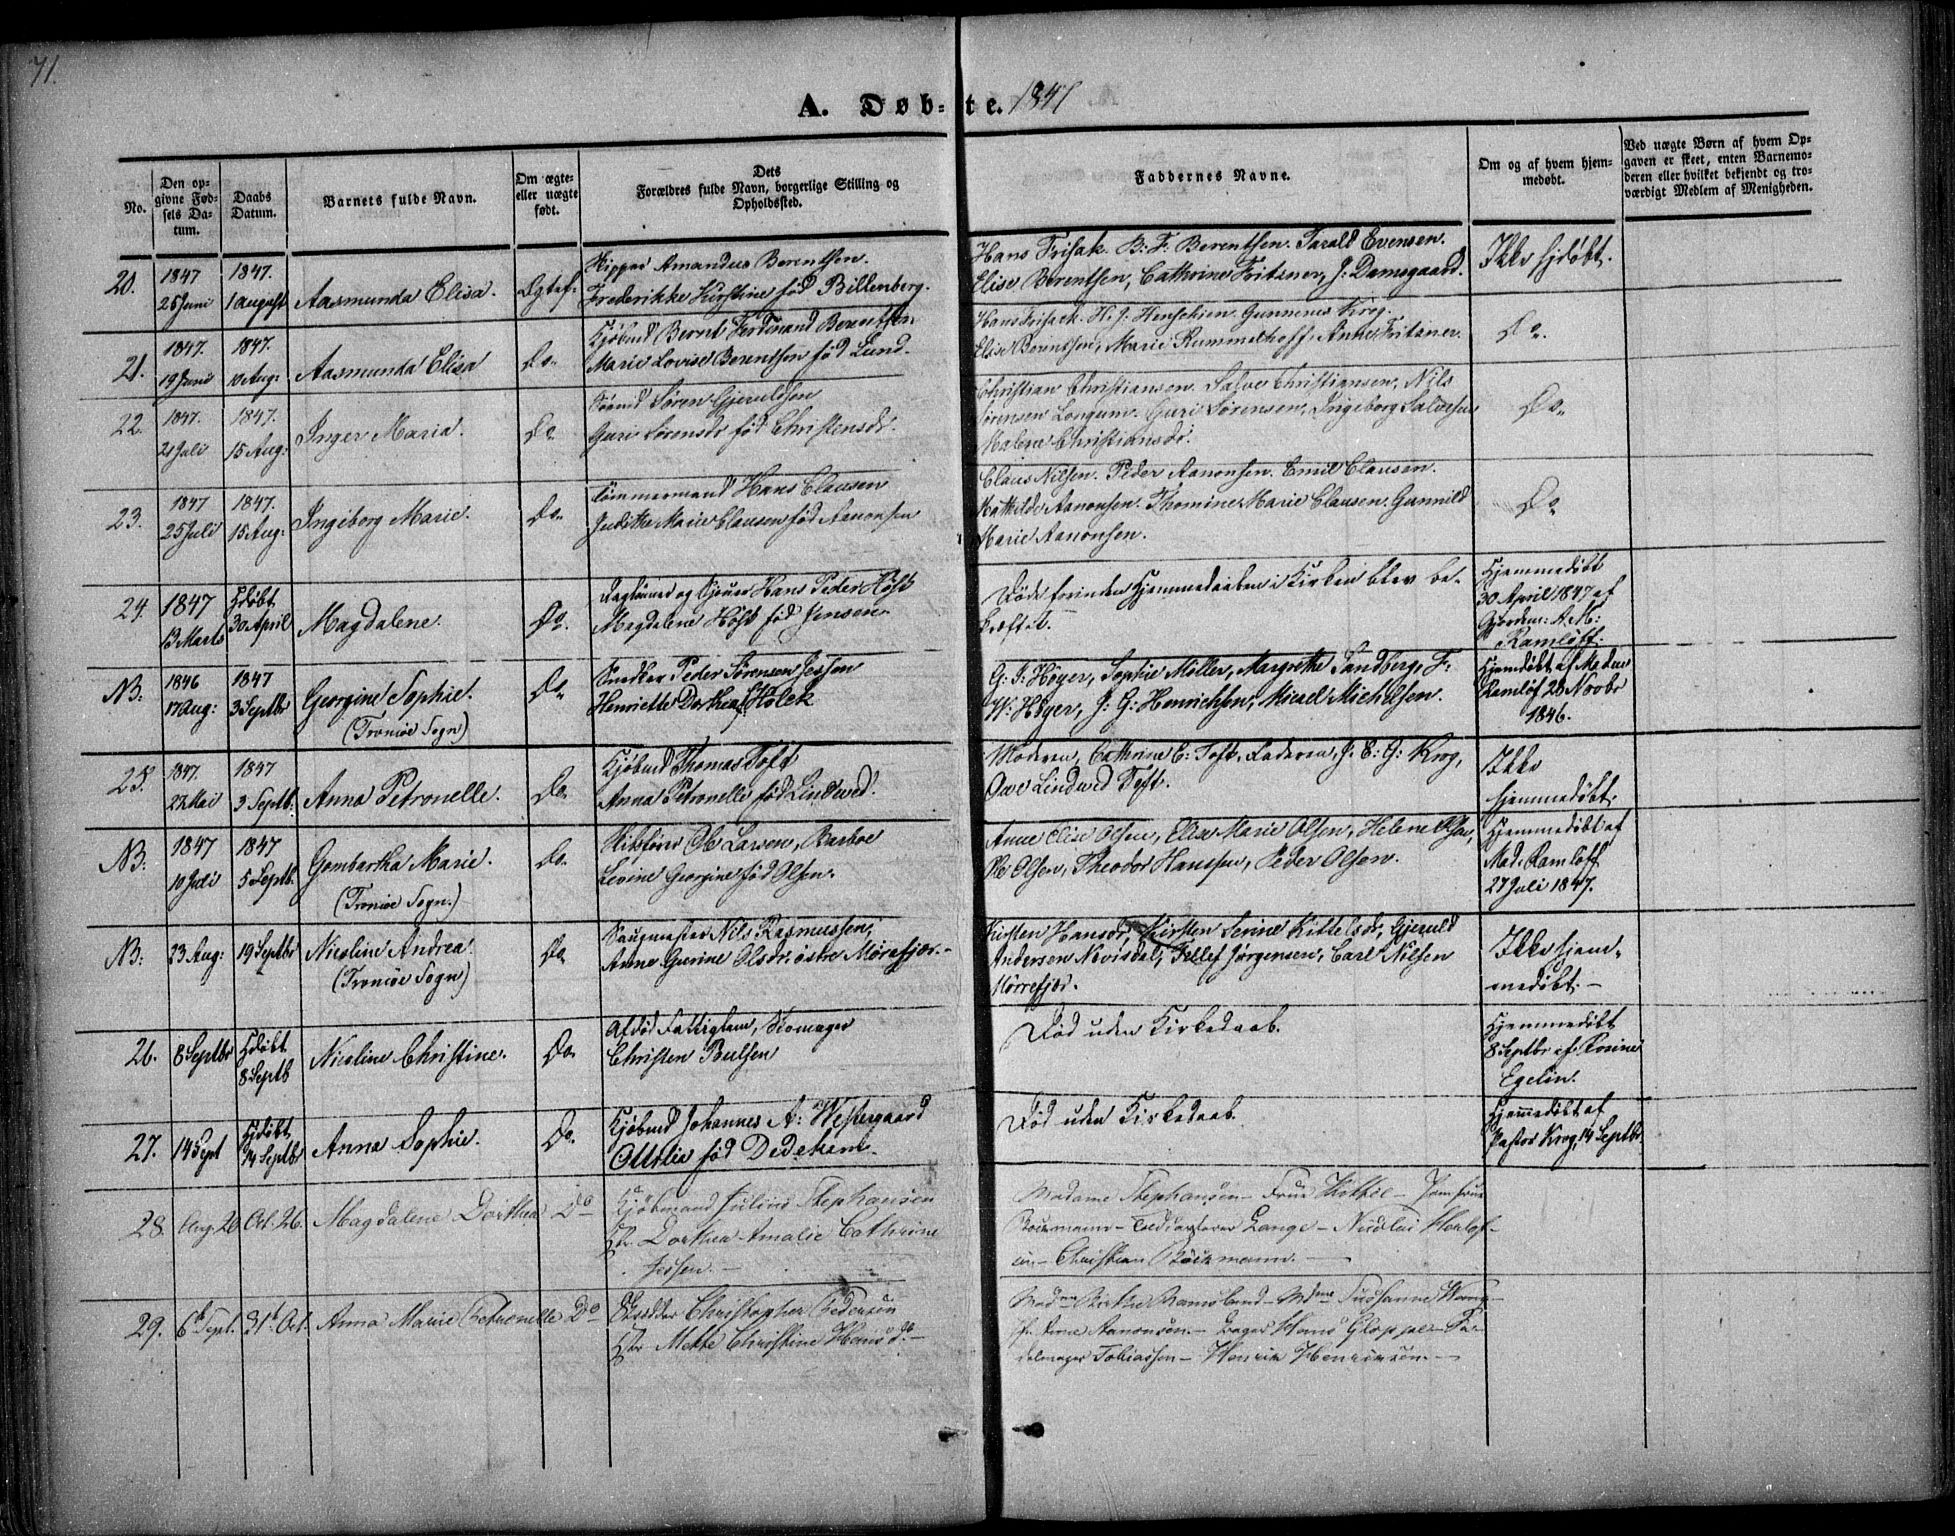 71.
A. Døb- te. 1847
No.
Den op-
givne Fød-
sels Da-
tum.
Daabs
Datum.
Barnets fulde Navn.
Om ægte-
eller uægte
født.
Dets
Forældres fulde Navn, borgerlige Stilling og
Opholdssted.
Faddernes Navne.
Om og af hvem hjem-
medøbt.
Ved uægte Børn af hvem Op-
gaven er skeet, enten Barnemo-
deren eller hvilket bekjendt og tro-
værdigt Medlem af Menigheden.
20.
1847
25 Juni
1847.
1 August
Aasmunda Elisa.
Ægtef:
Skipper Amandus Berentsen.
Frederikke Kirstine fød Billenberg.
Hans Frisak. B: F: Berentsen. Tarald Evensen.
Elise Berentsen, Cathrine Fritzner, J: Damsgaard.
Ikke hjdøbt.
21.
1847.
19 Juni
1847.
10 Aug:
Aasmunda Elisa
Do.
Kjøbmd Bernt Ferdinand Berentsen
Marie Lovise Berentsen fød Lund.
Hans Frisak. H. J. Henschien. Gunnenus Krog.
Elise Berentsen, Marie Rummelhoff. Anne Fritzner.
Do.
22.
1847.
21 Juli
1847.
15 Aug:
Inger Maria.
Do
Sømd Søren Gjeruldsen
Guri Sørensdr fød Christensdr.
Christian Christiansen. Salve Christiansen, Nils
Sørensen Longum. Guri Sørensen, Ingeborg Salvesen
Malene Christiansdr.
Do.
23.
1847
25 Juli
1847.
15 Aug:
Ingeborg Marie.
Do.
Tømmermand Hans Clausen
Judithe Marie Clausen fød Aanonsen
Claus Nilsen. Peder Aanonsen. Emil Clausen.
Mathilde Aanonsen. Thomine Marie Clausen. Gunnild
Marie Aanonsen.
Do
24.
1847
13 Marts
Hdøbt
30 April
Magdalene.
Do.
Daglønner og Sjouer Hans Peder Høst
Magdalene Høst fød Jensen.
Døde forinden Hjemmedaaben i Kirken blev be-
kræftet.
Hjemmedøbt
30 April 1847 af
Gjordem: A. M:
Ramløff.
NB:
1846
17 Aug:
1847
3 Septbr
Georgine Sophie.
(Tromøe Sogn)
Do.
Snedker Peder Sørensen Jessen
Henriette Dorthea f. Holck
G: J: Høyer, Sophie Møller, Margrethe Sandberg, F:
W: Høyer, J: G: Henrichsen, Micael Michelsen.
Hjemdøbt af Madm
Ramløf 28 Novbr
1846.
25.
1847.
27 Mai
1847
3 Septb.
Anna Petronelle.
Do.
Kjøbmd Thomas Toft
Anna Petronelle fød Lindved.
Moderen, Cathrine C: Toft, Faderen, J: E: G: Krog,
Ove Lindved Toft.
Ikke
hjemmedøbt.
NB:
1847
10 Juli
1847
5 Septb.
Gombertha Marie.
(Tromøe Sogn.)
Do.
Skibsfører Ole Larsen, Barboe
Levine Georgine fød Olsen.
Anne Elise Olsen, Elise Marie Olsen, Helene Olsen,
Ole Olsen, Theodor Hanssen, Peder Olsen.
Hjemmedøbt af
Mad. Ramløff
27 Juli 1847.
NB:
23 Aug:
19 Septbr
Nicoline Andrea.
(Tromøe Sogn)
Do
Saugmester Nils Rasmussen,
Anne Gurine Olsdr. østre Mørefjær.
Kirsten Hansdr, Kirsten Serine Kittelsdr, Gjeruld
Andersen Nævisdal, Tellef Jørgensen, Carl Nilsen
Mørrefjær.
Ikke hjem-
medøbt.
26.
8 Septbr
Hdøbt
8 Septb
Nicoline Christine.
Do.
Afdød Fattiglem, Skomager
Christen Bulsen
Død uden Kirkedaab.
Hjemmedøbt
8 Septbr af Rosine
Egelin.
27.
14 Sept
Hdøbt
14 Septbr
Anna Sophie.
Do.
Kjøbmd Johannes A: Westergaard
Ottilia fød Dedekam.
Død uden Kirkedaab.
Hjemmedøbt af
Pastor Krog, 14 Septbr.
28.
Aug. 26
Oct. 26.
Magdalene Dorthea
Do
Kjöbmand Julius Stephansen
Dorthea Amalie Cathrine
Jessen.
Madame Stephansen - Frue - Jomfrue
Böckmann - Lange - Nicolai Herlof-
sen - Christian Böckmann.
29.
6te Sept.
31te Oct.
Anna Marie Petronelle
Do
Christopher Pedersen
Mette Christine Hansdr.
Madme Birthe Ramsland - Mdme Susanne Wang -
Jfr. Anne Aanonsen - Bager Hans Gloppe - Sa-
delmager Tobiassen - Henrik Henriksen.